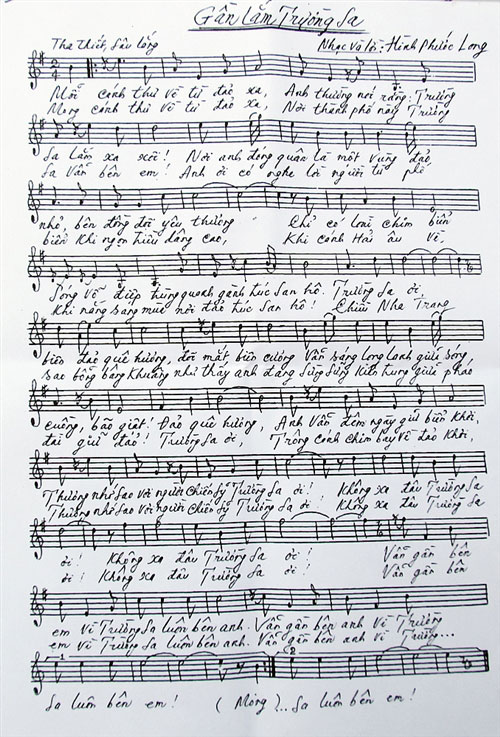 Gần lắm Trường Sa
Tha thiết, sâu lắng
Nhạc và lời: Hình Phước Long
Mỗi cánh thư về từ đảo xa, Anh thường nói rằng: Trường
Mong cánh thư về từ đảo xa, Nơi thành phố này Trường
Sa lắm xa xôi! Nơi anh đóng quân là một vùng đảo
Sa vẫn bên em! Anh ơi có nghe lời người từ phố
nhỏ, bên đồng đội yêu thương Chỉ có loài chim biển
biển khi ngọn triều dâng cao, Khi cánh Hải âu về,
Sóng vỗ điệp trùng quanh gành trúc san hô. Trường Sa ơi,
Khi nắng sang mùa nơi đảo trúc San hô! Chiều Nha Trang
biển đảo quê hương, đôi mắt biên cương vẫn sáng long lanh giữa sóng
sao bỗng bâng khuâng như thấy anh đang sừng sững hiên ngang giữa pháo
cuồng, bão giật! Đảo quê hương, Anh vẫn đêm ngày giữ biển khơi,
đài giữ đảo! Trường Sa ơi, Trông cánh chim bay về đảo khơi,
Thương nhớ sao với người Chiến sỹ Trường Sa ơi! Không xa đâu Trường Sa
Thương nhớ sao với người Chiến sỹ Trường Sa ơi! Không xa đâu Trường Sa
ơi! Không xa đâu Trường Sa ơi! Vẫn gần bên
ơi! Không xa đâu Trường Sa ơi! Vẫn gần bên
em vì Trường Sa luôn bên anh. Vẫn gần bên anh vì Trường
em vì Trường Sa luôn bên anh. Vẫn gần bên anh vì Trường...
1 2
Sa luôn bên em! (Mong)... Sa luôn bên em!